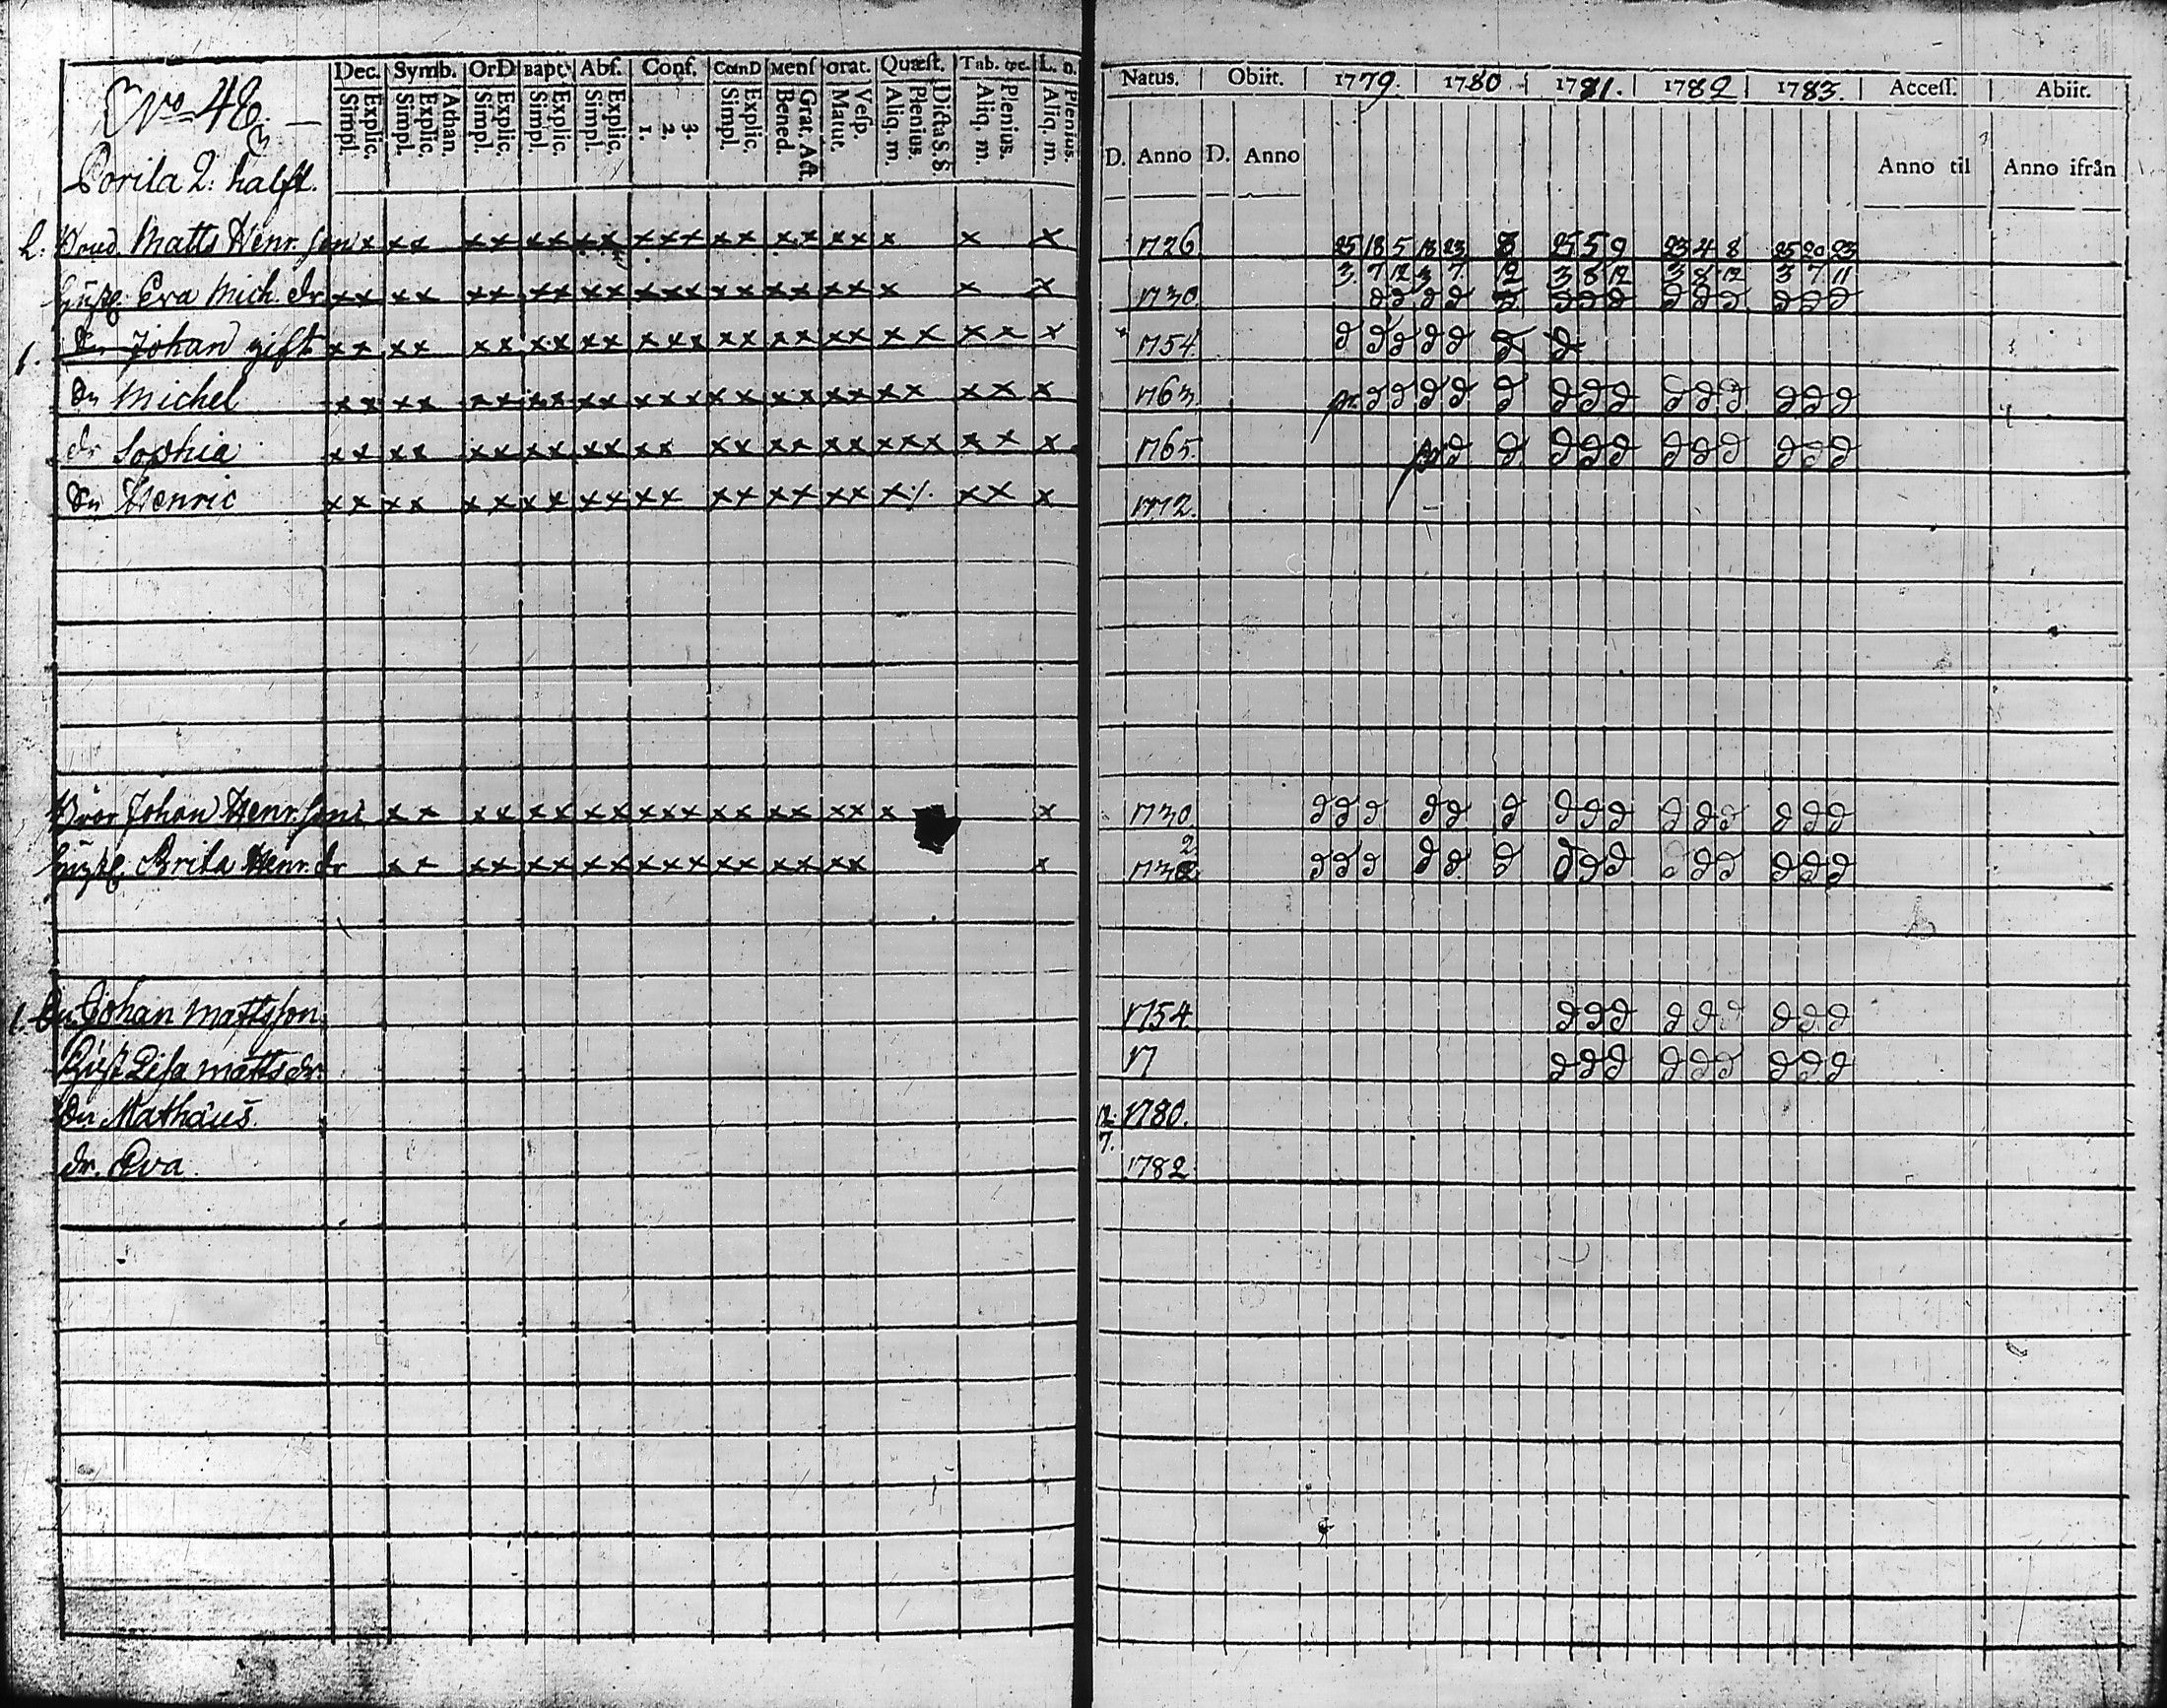 Dec. Symb. OrD Bapt. Abs. Conf. CœnD Mens orat. Quæst. Tab. œc. L. n.
Simpl. Explic. Simpl. Explic. Athan. Simpl. Explic. Simpl. Explic. Simpl. Explic. 1. 2. 3. Simpl. Explic. Bened. Grat. Act. Matut. Vesp. Aliq. m. Plenius. Dicta S. S. Aliq. m. Plenius. Aliq. m. Plenius.
No 48
Porila 2: halft.
Matts Henr. son x x x x x x x x x x x x x x x x x x x x x
Eva Mich. dr x x x x x x x x x x x x x x x x x x x x x x
1. Johan gift x x x x x x x x x x x x x x x x x x x x x x x x
Michel x x x x x x x x x x x x x x x x x x x x x x x x
dr Sophia x x x x x x x x x x x x x x x x x x x x x x x x
Henric x x x x x x x x x x x x x x x x x x x x x x
Johan Henr. son x x x x x x x x x x x x x x x x x x x
Brita Henr. dr x x x x x x x x x x x x x x x x x x
1. Johan Mattsson
Lisa Matts dr.
Mathäus.
dr. Eva
Natus. Obiit. 1779. 1780 1781. 1782 1783. Access. Abiit.
D. Anno D. Anno Anno til Anno ifrån
1726 25 18 5 18 23 25 5 9 23 4 8 25 20 23
3. 7 12 3 7 12 3 8 12 3 8 12 3 7 11
1730
1754
1763
1765.
1772.
1730
2
173
1754
17
12 1780.
7.
1782